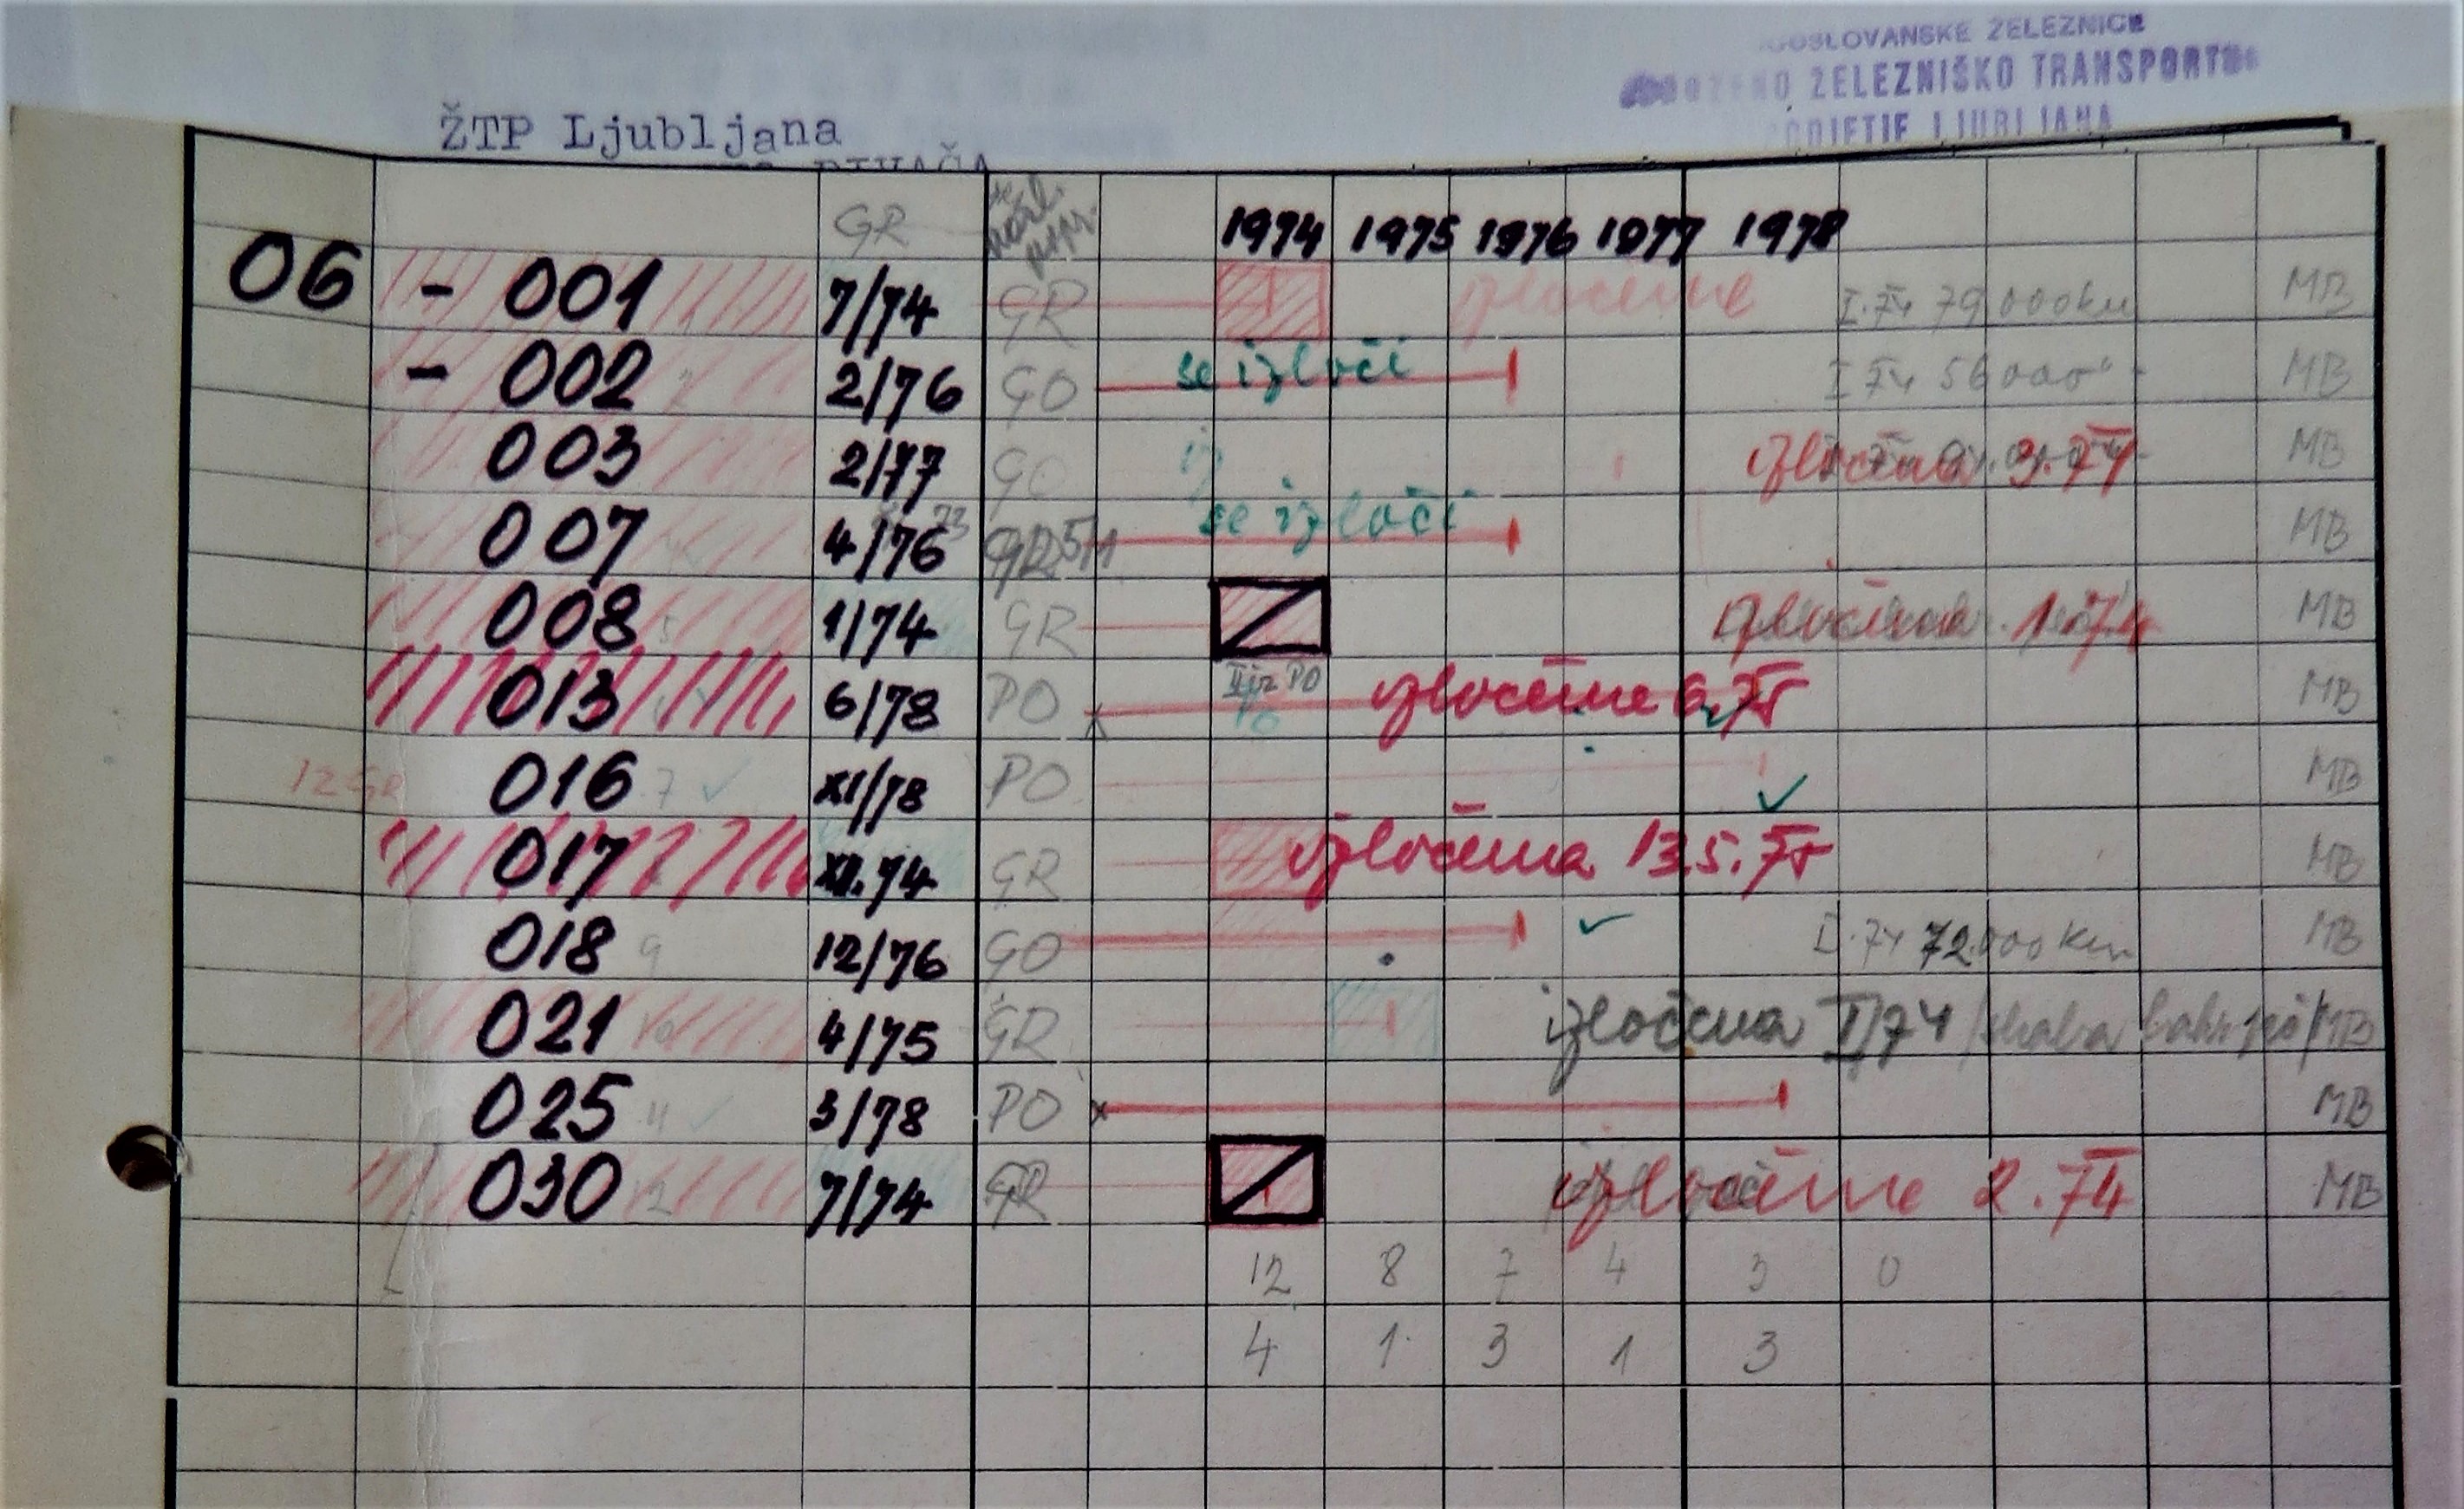 ŽELEZNICE
ŽELEZNIŠKO TRANSPORTNO
LJUBLJANA
ŽTP Ljubljana
DIVAČA
GR 1974 1975 1976 1977 1978
06 - 001 7/74 GR izločene I.74 79000 km MB
- 002 2 2/76 GO se izloči I 74 56000 MB
003 2/77 GO iz izločena 3.74 MB
007 4/76 GR se izloči MB
008 5 1/74 GR izločena 1.74 MB
013 6/78 PO PO izločene 6.75 MB
12 GR 016 7 ✓ XI/78 PO ✓ MB
017 XII.74 GR izločena 13.5.75 MB
018 9 12/76 GO ✓ I.74 72.000 km MB
021 10 4/75 GR izločena I/74 /slaba MB
025 11 ✓ 3/78 PO x MB
030 12 7/74 GR izločene 2.74 MB
12 8 7 4 3 0
4 1 3 1 3